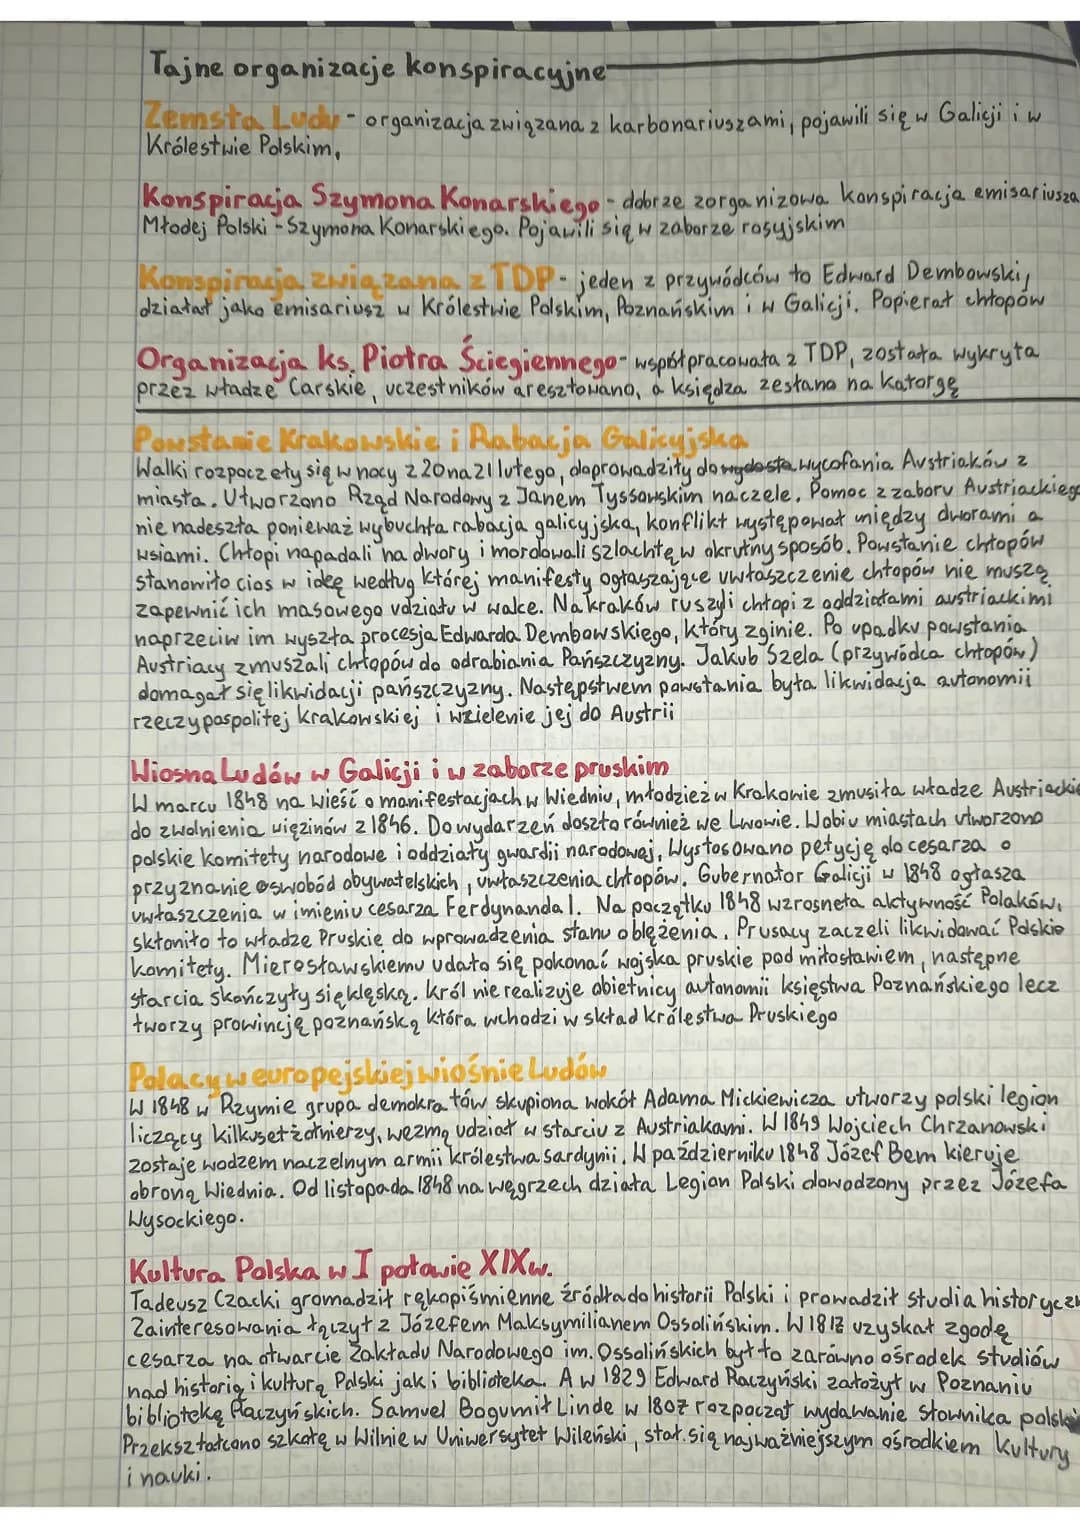 Tajne organizacje konspiracyjne
Zemsta Ludu - organizacja związana z karbonariuszami, pojawili się w Galicji i w
Królestwie Polskim,
Konspiracja Szymona Konarskiego - dobrze zorganizowa konspiracja emisariusza
Młodej Polski - Szymona Konarskiego. Pojawili się w zaborze rosyjskim
Konspiracja związana z TDP - jeden z przywódców to Edward Dembowski,
działał jako emisariusz w Królestwie Polskim, Poznańskim i w Galicji. Popierał chłopów
Organizacja ks. Piotra Ściegiennego - współpracowała z TDP, została wykryta
przez władze Carskie, uczestników aresztowano, a księdza zesłano na katorgę
Powstanie Krakowskie i Rabacja Galicyjska
Walki rozpoczęły się w nocy z 20 na 21 lutego, doprowadziły do wycofania Austriaków z
miasta. Utworzono Rząd Narodowy z Janem Tyssowskim na czele. Pomoc z zaboru Austriackiego
nie nadeszła ponieważ wybuchła rabacja galicyjska, konflikt występował między dworami a
wsiami. Chłopi napadali na dwory i mordowali szlachtę w okrutny sposób. Powstanie chłopów
stanowiło cios w ideę według której manifesty ogłaszające uwłaszczenie chłopów nie muszą
zapewnić ich masowego udziału w walce. Na kraków ruszyli chłopi z oddziałami austriackimi
naprzeciw im wyszła procesja Edwarda Dembowskiego, który zginie. Po upadku powstania
Austriacy zmuszali chłopów do odrabiania Pańszczyzny. Jakub Szela (przywódca chłopów)
domagał się likwidacji pańszczyzny. Następstwem powstania była likwidacja autonomii
rzeczypospolitej krakowskiej i wcielenie jej do Austrii
Wiosna Ludów w Galicji i w zaborze pruskim
W marcu 1848 na wieść o manifestacjach w Wiedniu, młodzież w Krakowie zmusiła władze Austriackie
do zwolnienia więzinów z 1846. Do wydarzeń doszło również we Lwowie. W obiu miastach utworzono
polskie komitety narodowe i oddziały gwardii narodowej. Wystosowano petycję do cesarza o
przyznanie swobód obywatelskich, uwłaszczenia chłopów. Gubernator Galicji w 1848 ogłasza
uwłaszczenia w imieniu cesarza Ferdynanda I. Na początku 1848 wzrosneła aktywność Polaków,
skłoniło to władze Pruskie do wprowadzenia stanu oblężenia. Prusacy zaczeli likwidować Polskie
komitety. Mierosławskiemu udało się pokonać wojska pruskie pod miłosławiem, następne
starcia skończyły się klęską. Król nie realizuje obietnicy autonomii księstwa Poznańskiego lecz
tworzy prowincję poznańską która wchodzi w skład królestwa Pruskiego
Polacy w europejskiej wiośnie Ludów
W 1848 w Rzymie grupa demokratów skupiona wokół Adama Mickiewicza utworzy polski legion
liczący kilkuset żołnierzy, wezmą udział w starciu z Austriakami. W 1849 Wojciech Chrzanowski
zostaje wodzem naczelnym armii królestwa sardynii. W październiku 1848 Józef Bem kieruje
obroną Wiednia. Od listopada 1848 na węgrzech działa Legion Polski dowodzony przez Józefa
Wysockiego.
Kultura Polska w I połowie XIXw.
Tadeusz Czacki gromadził rękopiśmienne źródła do historii Polski i prowadził studia
Zainteresowania łączył z Józefem Maksymilianem Ossolińskim. W uzyskał zgodę
cesarza na otwarcie Zakładu Narodowego im. Ossolińskich był to zarówno ośrodek studiów
nad historią i kulturą Polski jak i biblioteka. A w 1829 Edward Raczyński założył w Poznaniu
bibliotekę Raczyńskich. Samuel Bogumił Linde w 1807 rozpoczął wydawanie Słownika
Przekształcono szkołę w Wilnie w Uniwersytet Wileński, stał się najważniejszym ośrodkiem kultury
i nauki.